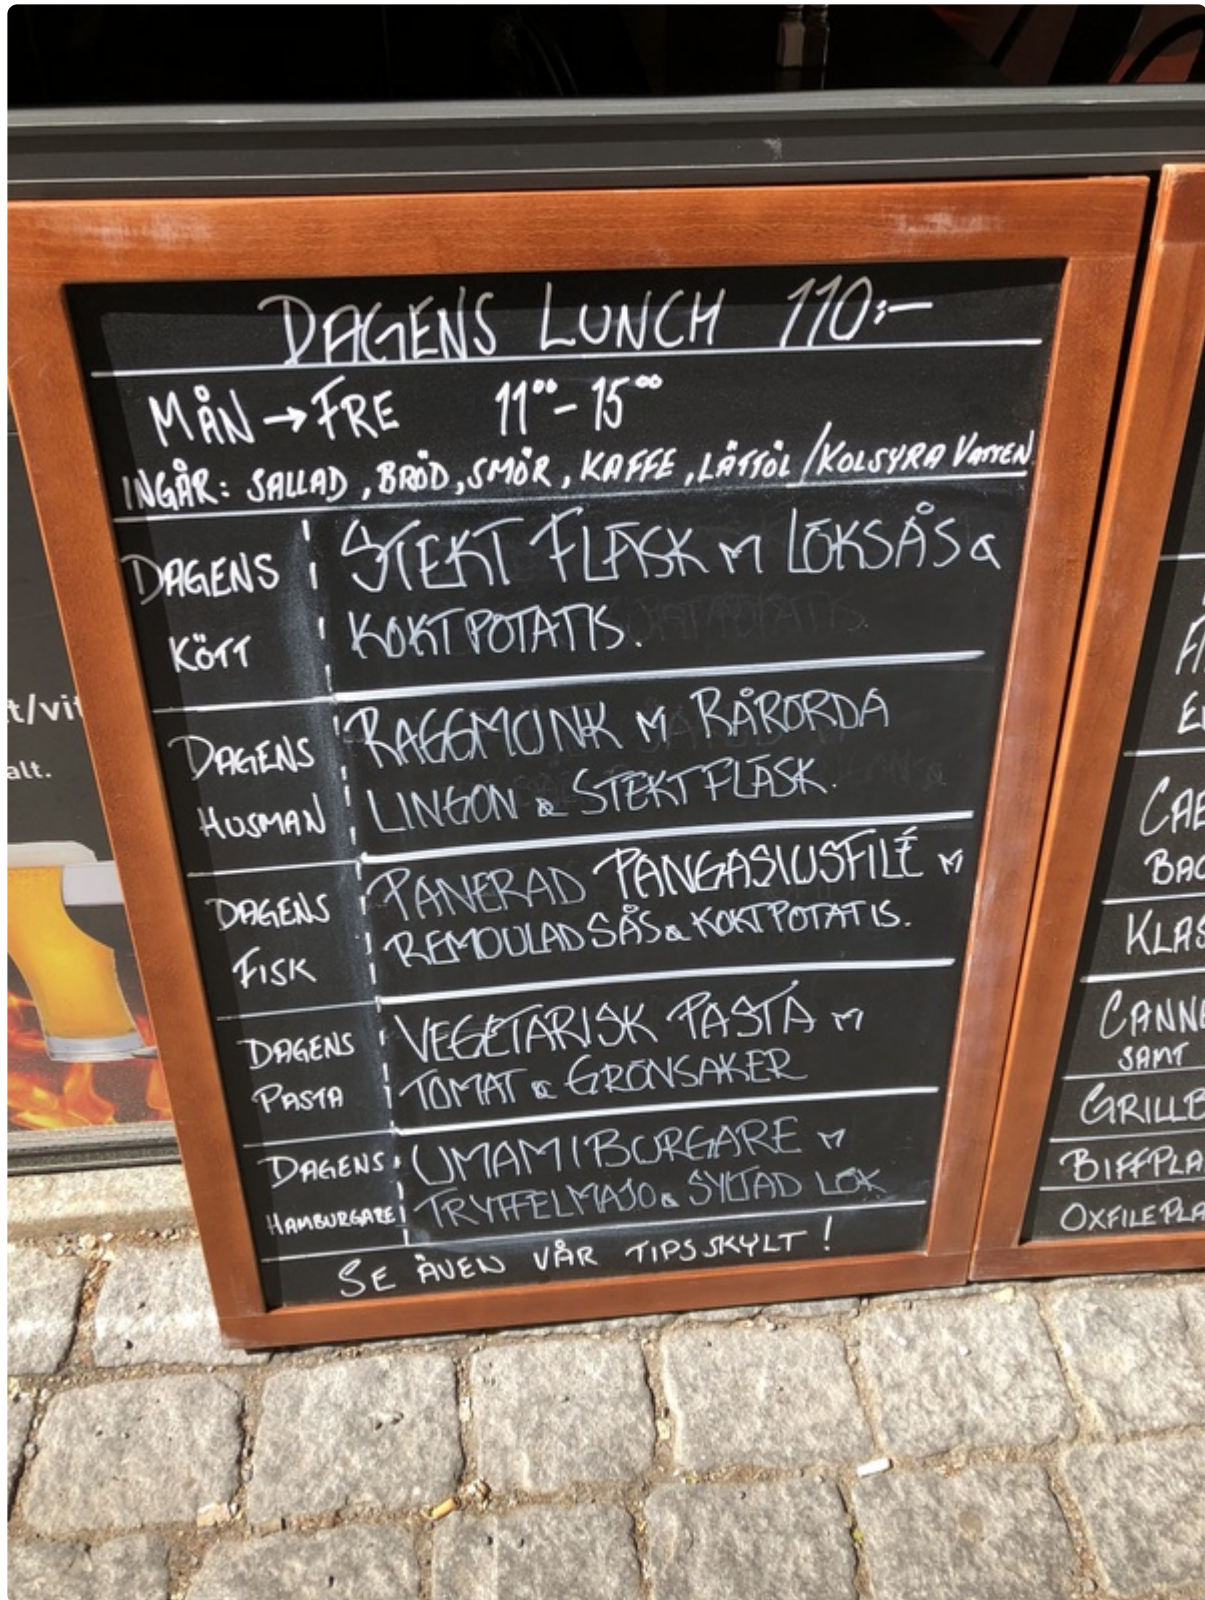 DAGENS LUNCH 110:-
MÅN → FRE 11⁰⁰ - 15⁰⁰
INGÅR: SALLAD, BRÖD, SMÖR, KAFFE, LÄTTÖL/KOLSYRA VATTEN
DAGENS
KÖTT
STEKT FLÄSK M LÖKSÅS &
KOKT POTATIS.
DAGENS
HUSMAN
RAGGMUNK M RÅRÖRDA
LINGON & STEKT FLÄSK.
DAGENS
FISK
PANERAD PANGASIUSFILÉ M
REMOULADSÅS & KOKT POTATIS.
DAGENS
PASTA
VEGETARISK PASTA M
TOMAT & GRÖNSAKER
DAGENS
HAMBURGARE
UMAMIBURGARE M
TRYFFELMAJO & SYLTAD LÖK
SE ÄVEN VÅR TIPSSKYLT!
t/vit
alt.
CAE
BAC
KLAS
CANNE
SAMT
GRILLB
BIFFPLA
OXFILEPLA